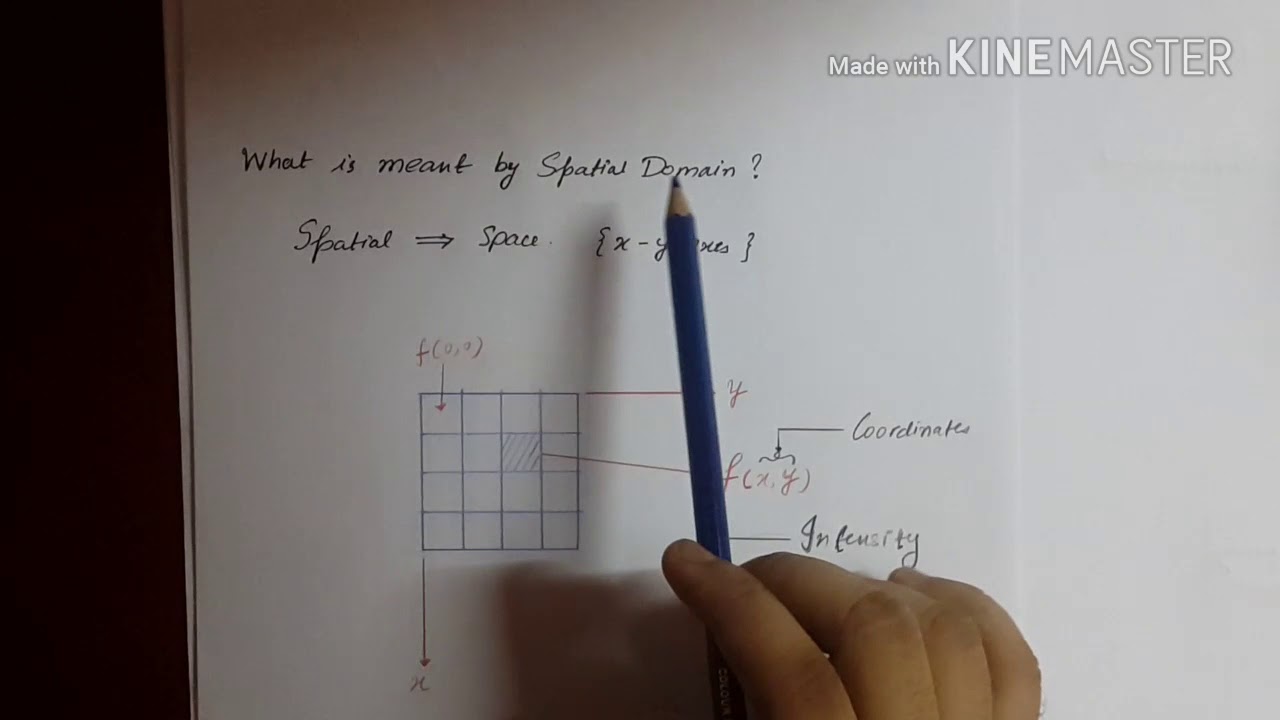 Made with KINEMASTER
What is meant by Spatial Domain ?
Spatial ⇒ Space. { x - y axes }
f(0,0)
y
Coordinates
f(x,y)
Intensity
x
COLOUR